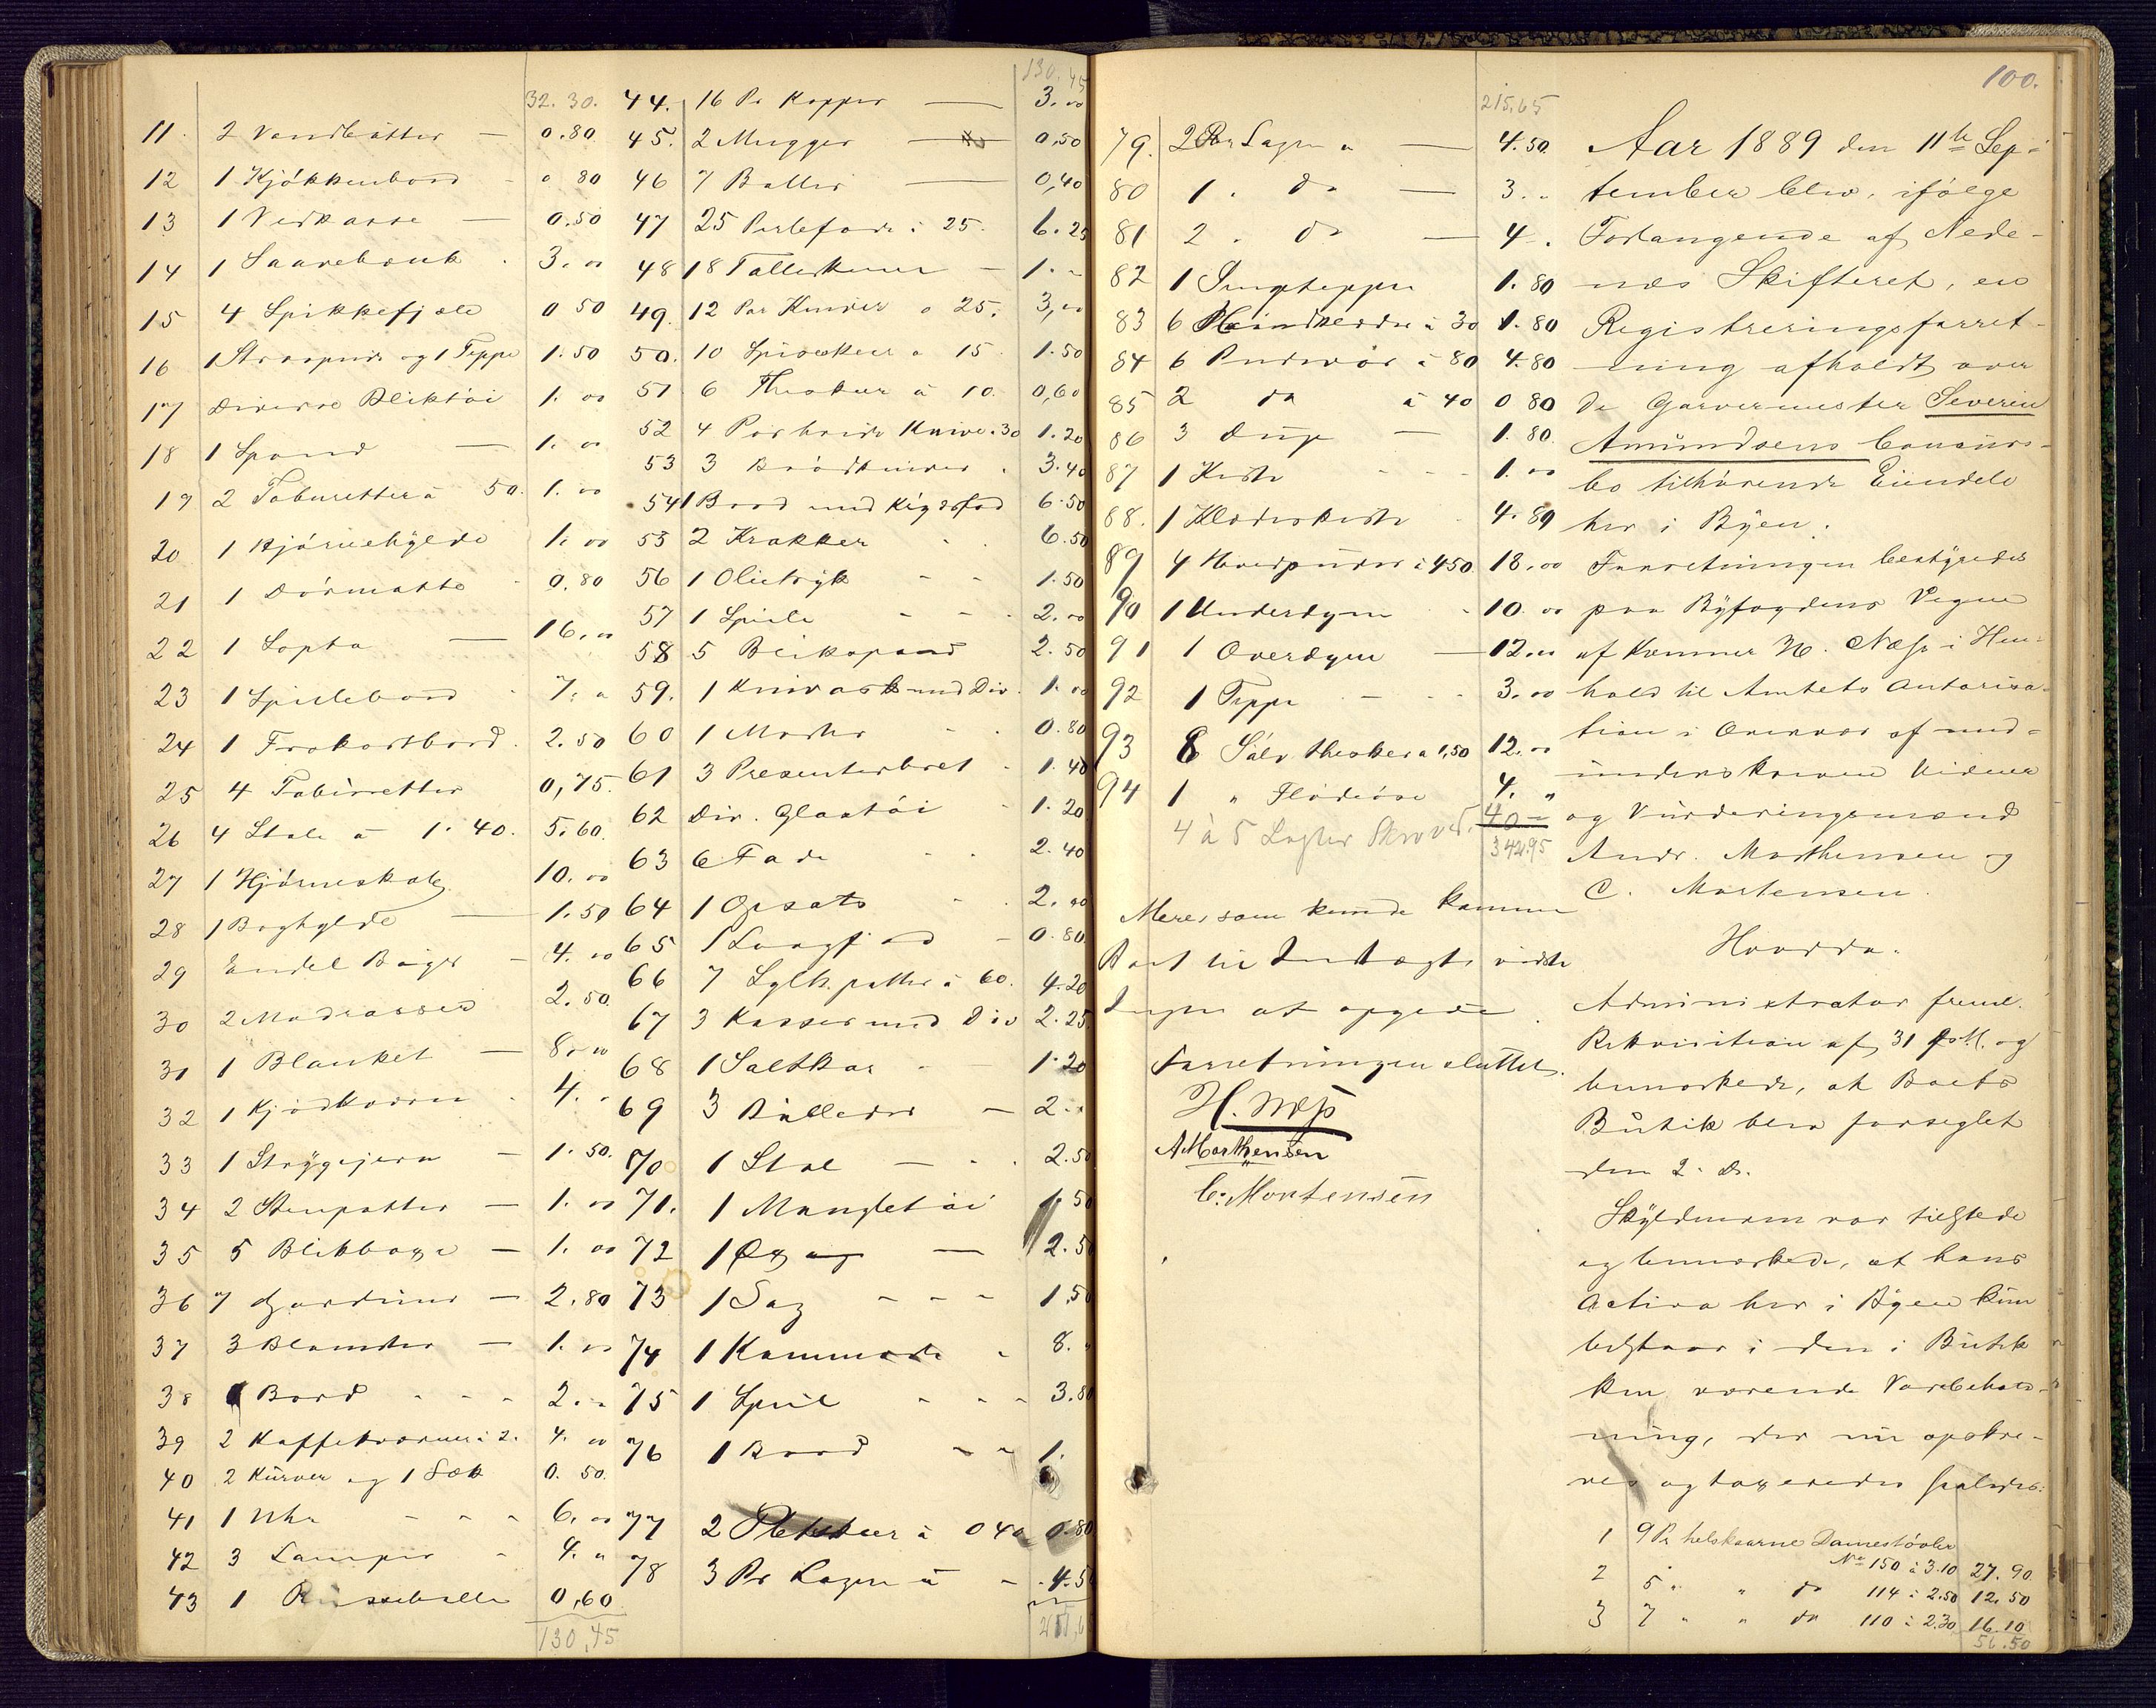 32. 30.
11. 2 Vandbøtter — 0.80
12 1 Kjøkkenbord - 0 80
13 1 Vedkasse — 0.50
14 1 Saarebænk . 3. 00
15 4 Spikkefjæle 0 50
16 1 Straapude og 1 Teppe 1.50
17 Diverse Bliktøi 1. 00
18 1 Spand — 1. 00
19 2 Taburetter à 50. 1. 00
20 1 Hjørnehylde 1. 00
21 1 Dørmatte - 0.80
22 1 Sopha — 16. 00
23 1 Spillebord - 7. "
24 1 Frokostbord. 2.50
25 4 Tabüretter 0,75
26 4 Stole à 1. 40. 5.60
27 1 Hjørneskab 10. 00
28 1 Boghylde — 1.50
29 Endel Bøger — 4. 00
30 2 Madrasser 2.50
31 1 Blanket — 8. 00
32 1 4. "
33 1 Strygejern — 1. 50.
34 2 Stenpotter — 1. 00
35 5 Blikboxe — 1. 00
36 7 Gardiner — 2.80
37 3 Blomster — 1. 00
38 1 Bord - - - 2. "
39 2 Kaffekværner à 2. 4. 00
40 2 Kürver og 1 Sæk 0. 50.
41 1 Uhr - - - 6. 00
42 3 Lamper - 4. "
43 1 0,60
130,45
130,45
44. 16 Pr Kopper — 3. 00
45. 2 Mugger — 0,50
46 7 Boller — 0,40
47 25 à 25. 6.25
48 18 Tallerkener — 1. "
49. 12 Par Kniver a 25. 3, 00
50. 10 Spiseskeer a 15. 1.50
51 6 Theskeer à 10. 0,60
52 4 Knive à 30 1.20
53 3 Brødkniver . 3.40
54 1 Bord med 6.50
55 2 Krakker - - 6.50
56 1 Olietryk - - 1.50
57 1 Speile - - - 2. 00
58 5 2.50
59. 1 Knivæske med Div. 1. 00
60 1 Morter - - 0.80
61 3 Presenterbret - 1.40
62 Div. Glastøi - 1.20
63 6 Fade - - 2.40
64 1 Opsats - - 2. 00
65 1 Langfad - 0.80
66 7 Syltepotter à 60. 4.20
67 3 Kasser med Div 2.25
68 1 Saltkar - 1.20
69 3 Billeder — 2. "
70 1 Stol — - - 2.50
71. 1 Mangletøi 1.50
72 1 Øx — 2.50
73 1 Sag - - - 1.50
74 1 Kommode - 8. "
75 1 Speil - - - 3.80
76 1 Bord - - 1.
77 2 à 0 40 0.80
78 3 Pr Lagen à - 4.50
215,65
79. 2 Par Lagen a — 4.50
80 1 . do — 3. "
81 2 . do — 4 .
82 1 Sengteppe 1.80
83 6 Haandklæder à 30 1.80
84 6 Pudevår à 80 4.80
85 2 do à 40 0 80
86 3 Duge — 1.80
87 1 Kiste - - - 1. 00
88. 1 Klædeskiste - 4.80
89 4 Hovedpuder à 450 18. 00
90 1 Underdyne - 10. 00
91 1 Overdyne — 12. 00
92 1 Teppe - - - 3. 00
93 8 Sølv theskeer a 1,50 12. 00
94 1 " Flødeøse 4. "
4 à 5 Lagter 40 —
342.95
Mere, som kunde komme
Boet til Indtægt, vidste
Ingen at opgive.
Forretningen sluttet.
H. Næss
A Morthensen
C. Mortensen
100.
Aar 1889 den 11te Sep-
tember blev, ifølge
Forlangende af Nede-
næs Skifteret, en
Registreringsforret-
ning afholdt over
de Garvermester Severin
Amundsens Concurs-
bo tilhørende Eiendele
her i Byen.
Forretningen bestyredes
paa Byfogdens Vegne
af Kemner H. Næss i Hen-
hold til Amtets Autorisa-
tion i Overvær af med-
underskrevne Vidner
og Vurderingsmænd
Andr. Morthensen og
C. Mortensen.
Hvorda:
Administrator freml.
Rekvisition af 31 f. M. og
bemærkede, at Boets
Butik blev forseglet
den 2. ds.
Skyldneren var tilstede
og bemærkede, at hans
Activa her i Byen kun
bestaar i den i Butik-
ken værende Varebehold-
ning, der nu opskre-
ves og taxeredes saaledes:
1 9 Pr helskaarne Damestøvler
No 150 à 3.10 27.90
2 5 " " do 114 à 2.50 12.50
3 7 " " do 110 à 2.30 16.10
56.50